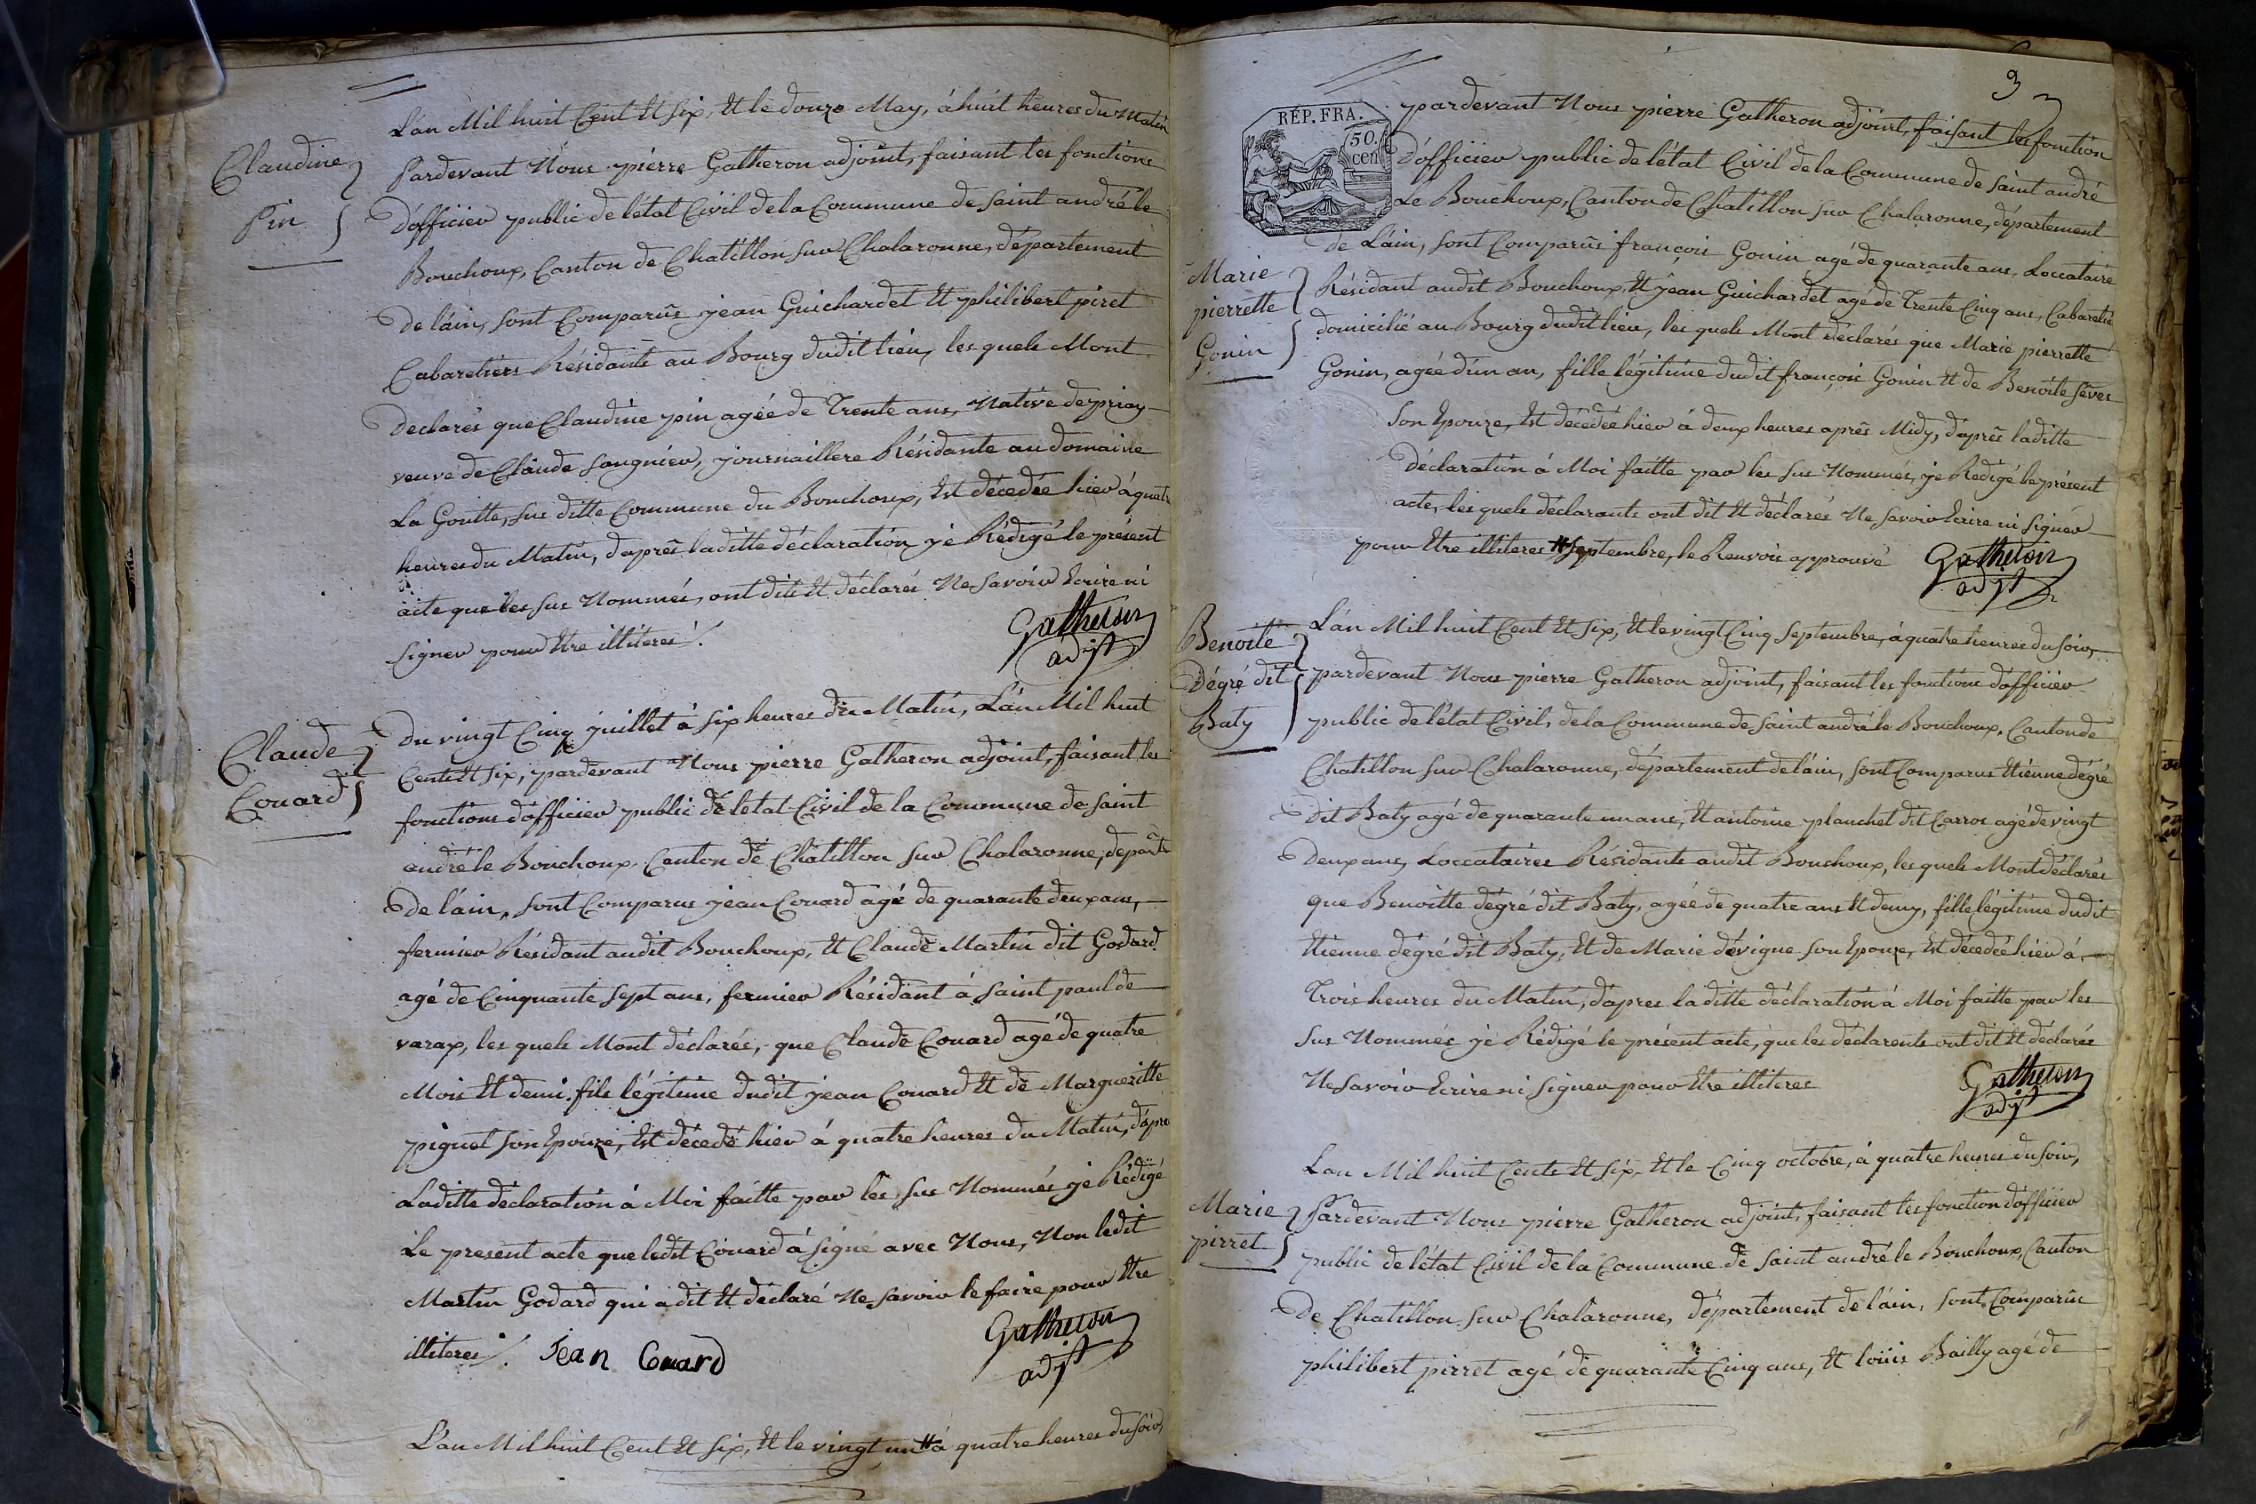 L'an Mil huit Cent Et Six, Et le douze May, á huit heures du Matin
Claudine
Pin
Pardevant Nous pierre Gatheron adjoint, faisant les fonctions
D'officier public de l'état Civil de la Commune de Saint andré le
Bouchoux, Canton de Chatillon sur Chalaronne, département
De l'ain, sont Comparûs jean Guichardet Et philibert piret
Cabaretiers Résidants au Bourg dudit lieu, les quels Mont
Declarés que Claudine pin agée de Trente ans, Native de priay
veuve de Claude Sangnier, journaillere Résidante au domaine
La Goutte, sus ditte Commune du Bouchoux, Est décedée hier á quatre
heures du Matin, d'aprês laditte déclaration j'é Rédigé le présent
acte que les sus Nommés, ont dits Et déclarés Ne savoir Ecrire ni
signer pour Etre illiteres /.
Gatheron
adjt
Claude
Couard
Du vingt Cinq juillet à six heures du Matin, L'an Mil huit
Cents Et Six, pardevant Nous pierre Gatheron adjoint, faisant les
fonctions d'officier public de l'état Civil de la Commune de Saint
andré le Bouchoux, Canton de Châtillon sur Chalaronne, départt
De l'ain, sont Comparus jean Couard agé de quarante deux ans,
fermier Résidant audit Bouchoux, Et Claude Martin dit Godard
agé de Cinquante sept ans, fermier Résidant á Saint paul de
varax, les quels Mont déclarés, que Claude Couard agé de quatre
Mois Et demi, fils légitime dudit jean Couard Et de Margueritte
piquet son Epouze, Est décedé hier à quatre heures du Matin, d'apre
Laditte déclaration á Moi faitte par les sus Nommés j'é Rédigé
Le present acte que ledit Couard á signé avec Nous, Non ledit
Martin Godard qui a dit Et déclaré Ne savoir le faire pour Etre
illiteres /. Jean Couard
Gatheron
adjt
L'an Mil huit Cent Et Six, Et le vingt un # á quatre heures du soir,
3
RÉP. FRA.
50.
cen
pardevant Nous pierre Gatheron adjoint, faisant les fonction
D'officier public de l'état Civil de la Commune de Saint andré
Le Bouchoux, Canton de Chatillon sur Chalaronne, département
de L'ain, sont Comparûs françois Gonin agé de quarante ans, Loccataire
Marie
pierrette
Gonin
Résidant audit Bouchoux, Et jean Guichardet agé de Trente Cinq ans, Cabaretié
domicilié au Bourg dudit lieu, les quels Mont déclarés que Marie pierrette
Gonin, agée d'un an, fille légitime dudit françois Gonin Et de Benoite
Son Epouze, Est décedée hier á deux heures aprês Midy, d'aprês laditte
Déclaration á Moi faitte par les sus Nommés, j'é Redigé le présent
acte, les quels déclarants ont dit Et déclarés Ne savoir Ecrire ni signer
pour Etre illiteres # Septembre, le Renvoi approuvé
Gatheron
adjt
Benoite
Dégré dit
Baty
L'an Mil huit Cent Et Six, Et le vingt Cinq Septembre, á quatre heures du soir,
pardevant Nous pierre Gatheron adjoint, faisant les fonctions d'officier
public de l'état Civil, de la Commune de Saint andré le Bouchoux, Canton de
Chatillon sur Chalaronne, département de l'ain, sont Comparus Etienne dégré
Dit Baty agé de quarante un ans, Et antoine planchet dit Carros agé de vingt
Deux ans, Loccataires Résidants audit Bouchoux, les quels Mont déclarés
que Benoitte dégré dit Baty, agée de quatre ans Et demy, fille légitime dudit
Etienne dégré dit Baty, Et de Marie dévigne son Epouze, Est décedée hier á
Trois heures du Matin, d'apres laditte déclaration á Moi faitte par les
sus Nommés j'é Rédigé le présent acte, que les déclarents ont dit Et déclarés
Ne savoir Ecrire ni signer pour Etre illiteres
Gatheron
adjt
L'an Mil huit Cents Et Six, Et le Cinq octobre, á quatre heures du soir,
Marie
pirret
Pardevant Nous pierre Gatheron adjoint, faisant les fonction d'officier
public de l'état Civil de la Commune de Saint andré le Bouchoux, Canton
De Chatillon sur Chalaronne, département de l'ain, sont Comparûs
philibert pirret agé de quarante Cinq ans, Et loüis Bailly agé de